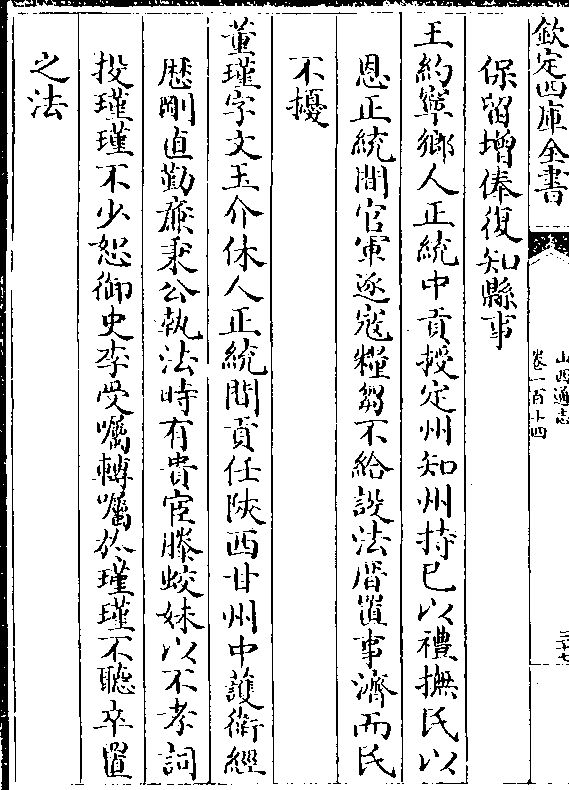 欽定四庫全書
山西通志
卷一百十四
三十七
保留増俸復知縣事
王約寧鄉人正統中貢授定州知州持己以禮撫民以
恩正統間官軍逐寇糧芻不給設法厝置事濟而民
不擾
董瑾字文玉介休人正統間貢任陜西甘州中護衛經
歴剛直勤㢘秉公執法時有貴宦滕蛟妹以不孝詞
投瑾瑾不少恕御史李受囑轉囑於瑾瑾不聽卒置
之法